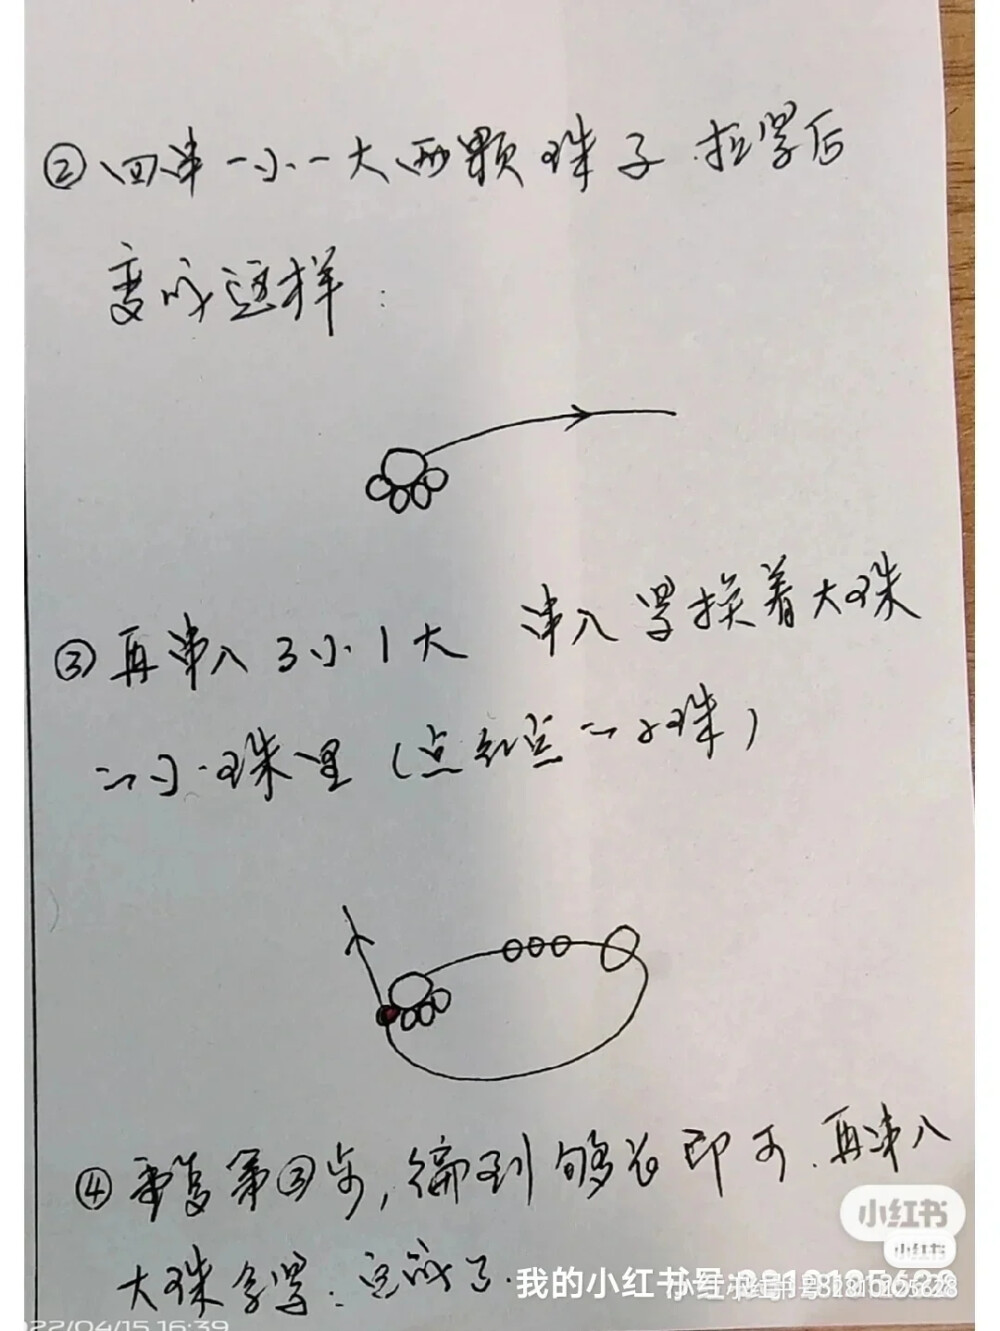 ②回串一小一大两颗珠子.拉紧后
变成这样:
③再串入3小1大 串入紧挨着大珠
的小珠里(点红点的小珠)
④重复第③步,编到够长即可.再串入
大珠拿紧.完成了.
小红书
小红书
我的小红书号:2818125628
2022/04/15 16:39